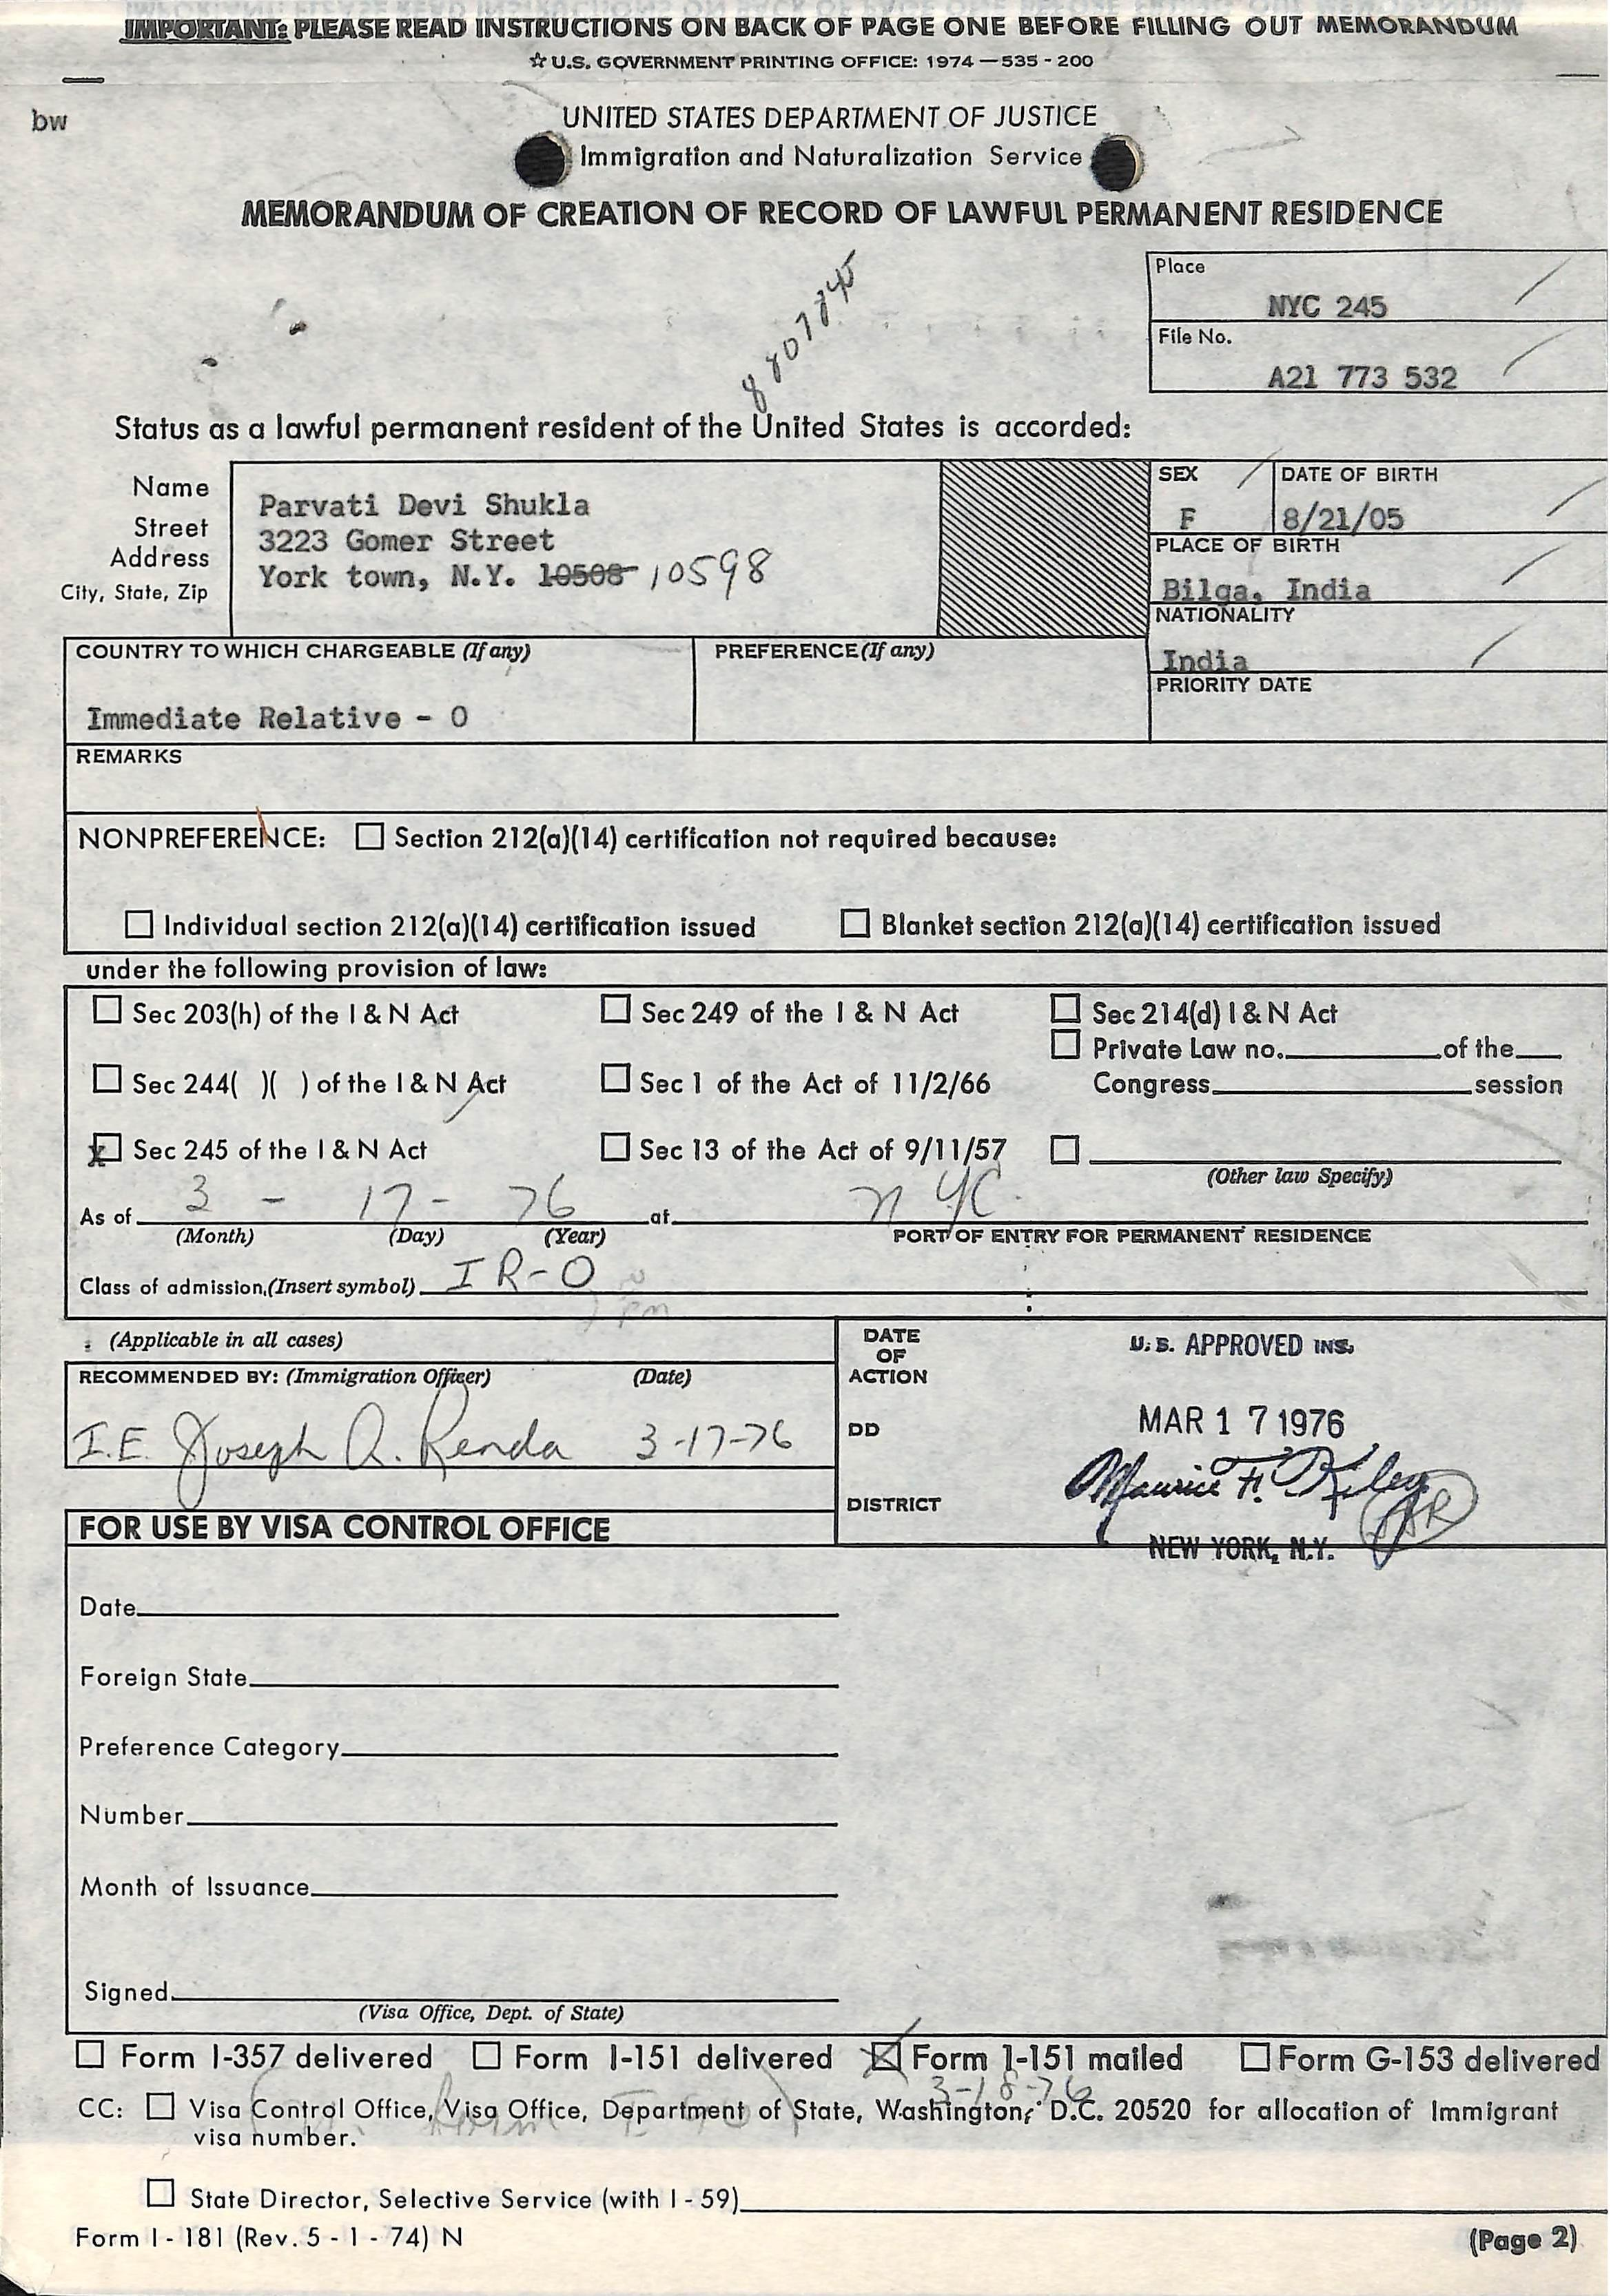 IMPORTANT: PLEASE READ INSTRUCTIONS ON BACK OF PAGE ONE BEFORE FILLING OUT MEMORANDUM
☆ U.S. GOVERNMENT PRINTING OFFICE: 1974—535-200
bw
UNITED STATES DEPARTMENT OF JUSTICE
Immigration and Naturalization Service
MEMORANDUM OF CREATION OF RECORD OF LAWFUL PERMANENT RESIDENCE
Place
NYC 245
File No.
A21 773 532
Status as a lawful permanent resident of the United States is accorded:
Name
Street
Address
City, State, Zip
Parvati Devi Shukla
3223 Gomer Street
York town, N.Y. 10508 10598
SEX
F
DATE OF BIRTH
8/21/05
PLACE OF BIRTH
Bilga, India
NATIONALITY
India
PRIORITY DATE
COUNTRY TO WHICH CHARGEABLE (If any)
Immediate Relative - O
PREFERENCE (If any)
REMARKS
NONPREFERENCE: ☐ Section 212(a)(14) certification not required because:
☐ Individual section 212(a)(14) certification issued ☐ Blanket section 212(a)(14) certification issued
under the following provision of law:
☐ Sec 203(h) of the I & N Act ☐ Sec 249 of the I & N Act ☐ Sec 214(d) I & N Act
☐ Private Law no. of the
☐ Sec 244( )( ) of the I & N Act ☐ Sec 1 of the Act of 11/2/66 Congress session
x☐ Sec 245 of the I & N Act ☐ Sec 13 of the Act of 9/11/57 ☐
(Other law Specify)
As of 3 - 17 - 76 at NYC.
(Month) (Day) (Year) PORT OF ENTRY FOR PERMANENT RESIDENCE
Class of admission, (Insert symbol) IR-O
(Applicable in all cases)
RECOMMENDED BY: (Immigration Officer) (Date)
I.E. Joseph A. Renda 3-17-76
DATE
OF
ACTION
DD
DISTRICT
U.S. APPROVED INS.
MAR 17 1976
Maurice F. Kiley
NEW YORK, N.Y.
FOR USE BY VISA CONTROL OFFICE
Date
Foreign State
Preference Category
Number
Month of Issuance
Signed
(Visa Office, Dept. of State)
☐ Form I-357 delivered ☐ Form I-151 delivered ☒ Form I-151 mailed ☐ Form G-153 delivered
3-18-76
CC: ☐ Visa Control Office, Visa Office, Department of State, Washington, D.C. 20520 for allocation of Immigrant
visa number.
☐ State Director, Selective Service (with I-59)
Form I-181 (Rev. 5-1-74) N
(Page 2)